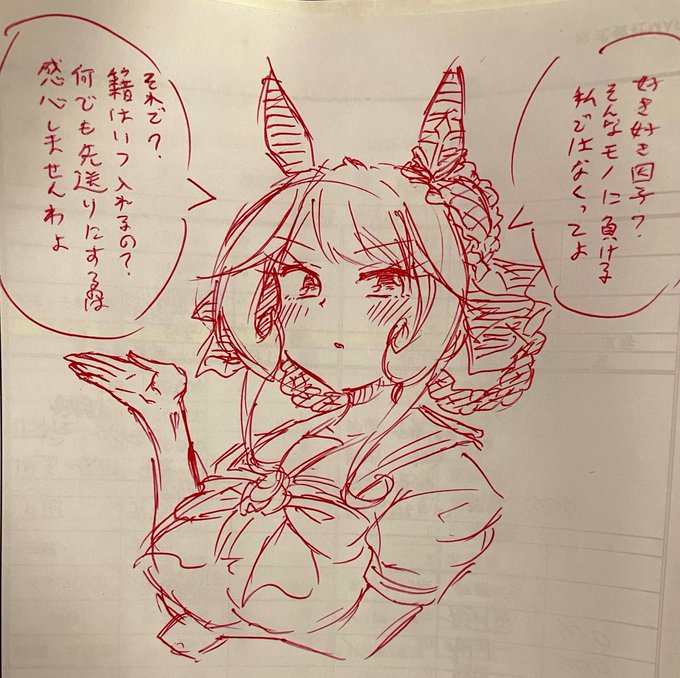 好き好き因子?
そんなモノに負ける
私ではなくってよ
それで?
籍はいつ入れるの?
何でも先送りにする
感心しませんわよ